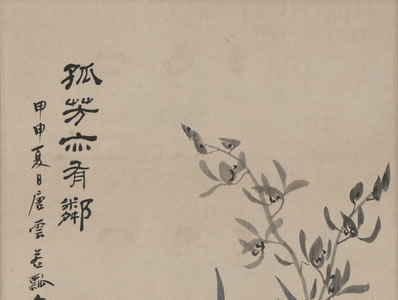 孤芳亦有鄰
甲申夏日唐雲老瓢